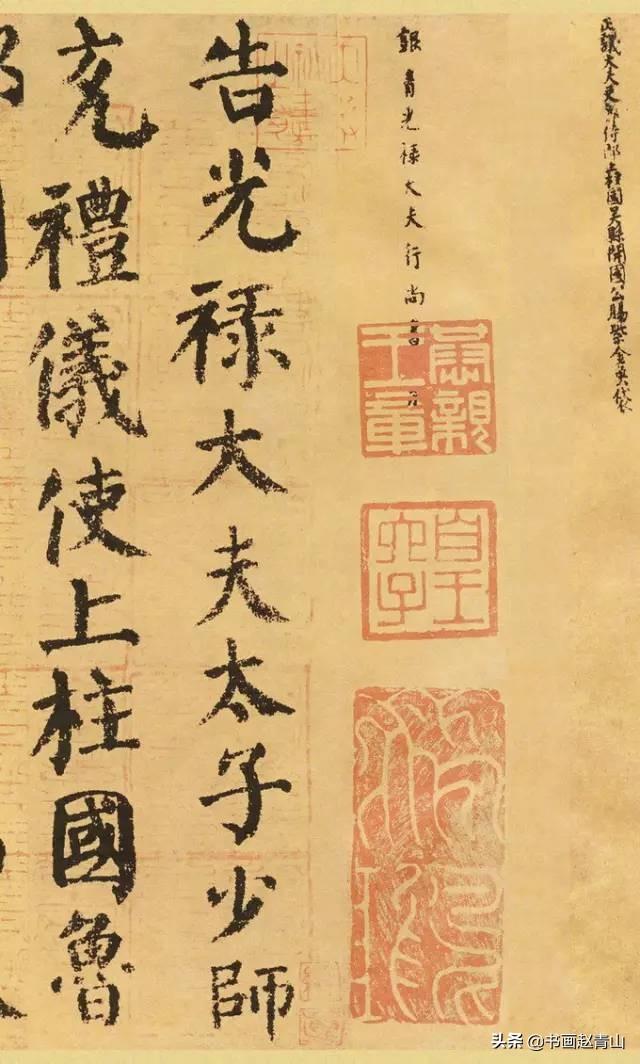 正議大夫吏部侍郎上柱國吳縣開國公賜紫金魚袋
銀青光祿大夫行尚書
肅親王章
皇六子
告光祿大夫太子少師
充禮儀使上柱國魯
头条 @书画赵青山